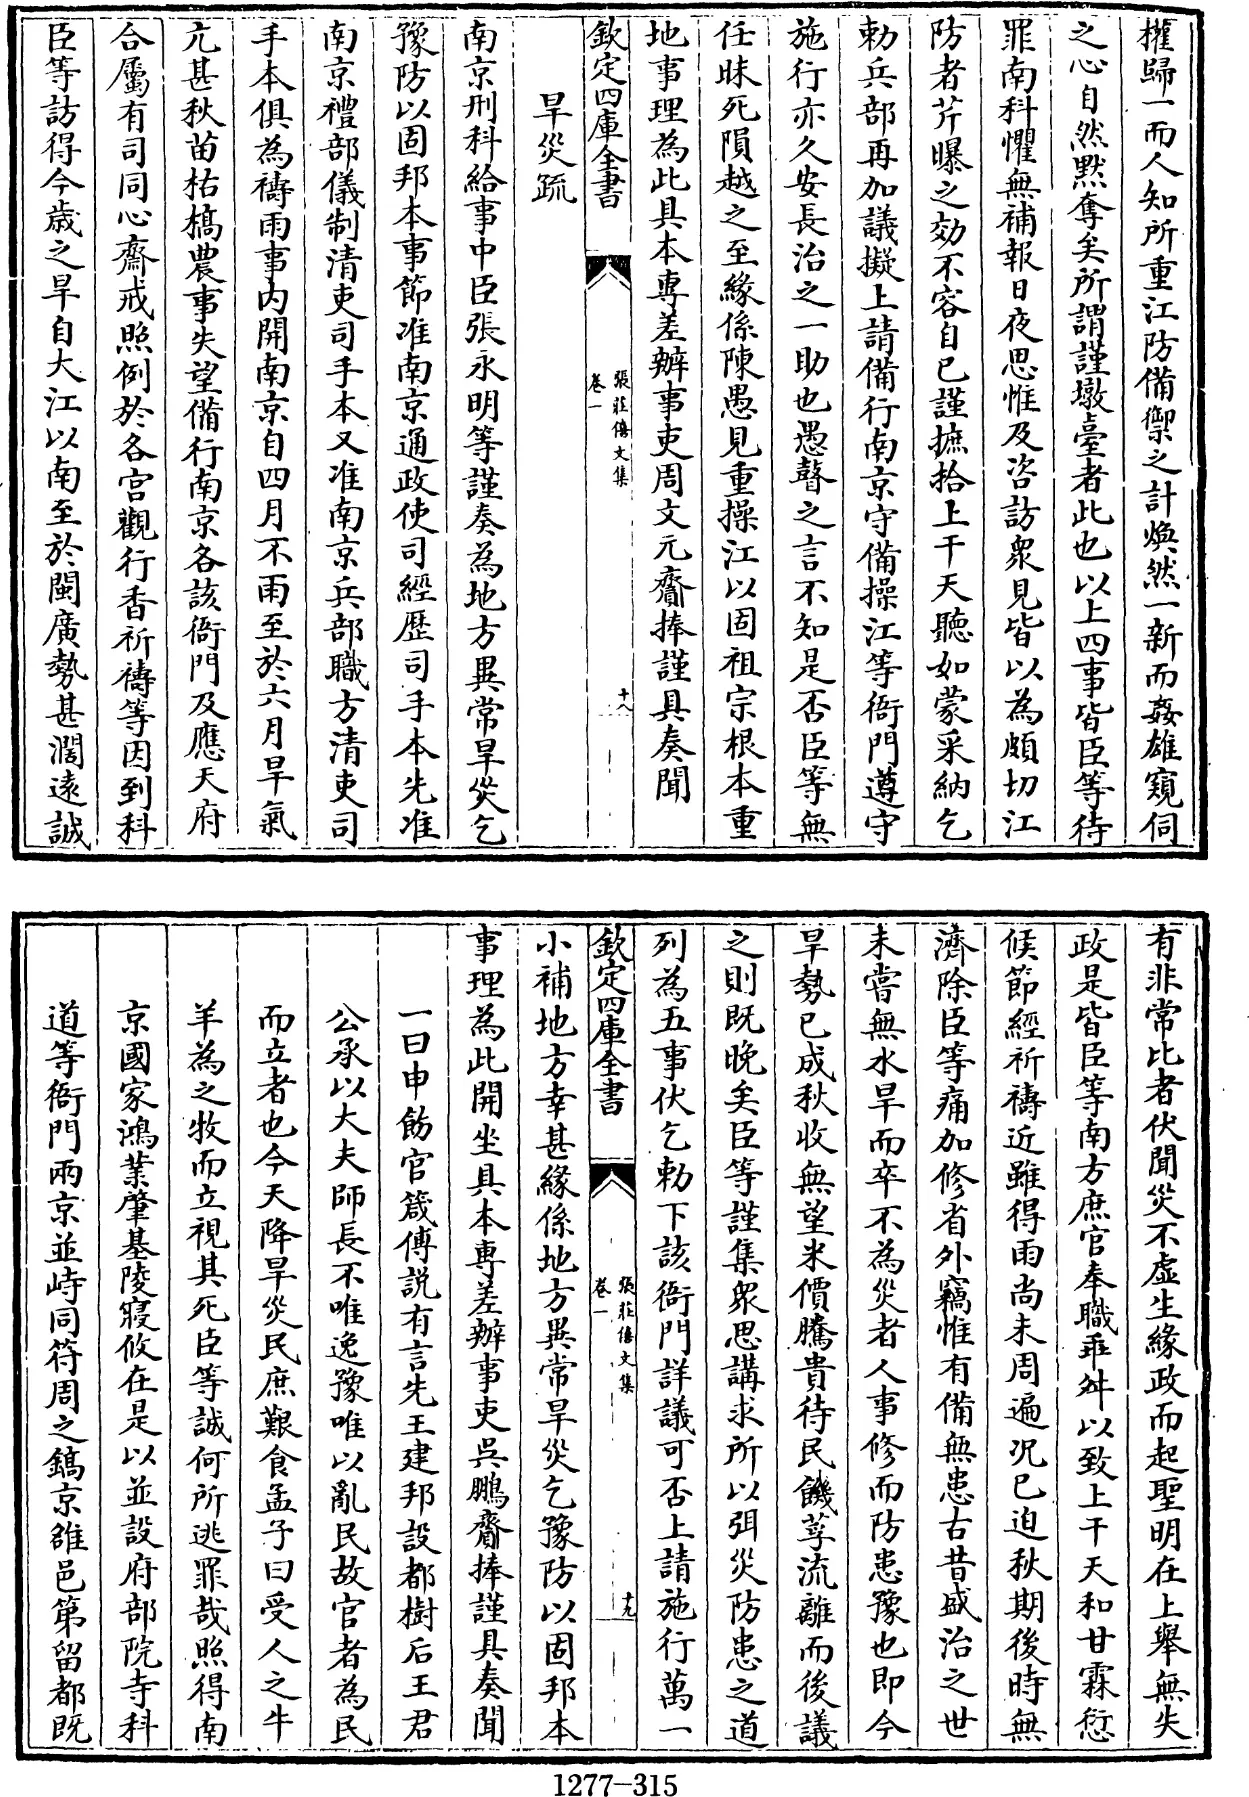 權歸一而人知所重江防備禦之計煥然一新而姦雄窺伺
之心自然黙奪矣所謂謹墩臺者此也以上四事皆臣等待
罪南科懼無補報日夜思惟及咨訪衆見皆以為頗切江
防者芹曝之効不容自已謹摭拾上干天聽如蒙采納乞
勅兵部再加議擬上請備行南京守備操江等衙門遵守
施行亦久安長治之一助也愚瞽之言不知是否臣等無
任昧死隕越之至緣係陳愚見重操江以固祖宗根本重
地事理為此具本專差辦事吏周文元齎捧謹具奏聞
欽定四庫全書
張莊僖文集
卷一
十八
旱災疏
南京刑科給事中臣張永明等謹奏為地方異常旱災乞
豫防以固邦本事節准南京通政使司經歷司手本先准
南京禮部儀制清吏司手本又准南京兵部職方清吏司
手本俱為禱雨事内開南京自四月不雨至於六月旱氣
亢甚秋苗枯槁農事失望備行南京各該衙門及應天府
合屬有司同心齋戒照例於各宮觀行香祈禱等因到科
臣等訪得今歲之旱自大江以南至於閩廣勢甚濶遠誠
有非常比者伏聞災不虛生緣政而起聖明在上舉無失
政是皆臣等南方庶官奉職乖舛以致上干天和甘霖愆
候節經祈禱近雖得雨尚未周遍况已迫秋期後時無
濟除臣等痛加修省外竊惟有備無患古昔盛治之世
未嘗無水旱而卒不為災者人事修而防患豫也即今
旱勢已成秋收無望米價騰貴待民饑莩流離而後議
之則既晚矣臣等謹集衆思講求所以弭災防患之道
列為五事伏乞勅下該衙門詳議可否上請施行萬一
欽定四庫全書
張莊僖文集
卷一
十九
小補地方幸甚緣係地方異常旱災乞豫防以固邦本
事理為此開坐具本專差辦事吏吳鵬齎捧謹具奏聞
一曰申飭官箴傅説有言先王建邦設都樹后王君
公承以大夫師長不唯逸豫唯以亂民故官者為民
而立者也今天降旱災民庶艱食孟子曰受人之牛
羊為之牧而立視其死臣等誠何所逃罪哉照得南
京國家鴻業肇基陵寢攸在是以並設府部院寺科
道等衙門兩京並峙同符周之鎬京雒邑第留都既
1277-315